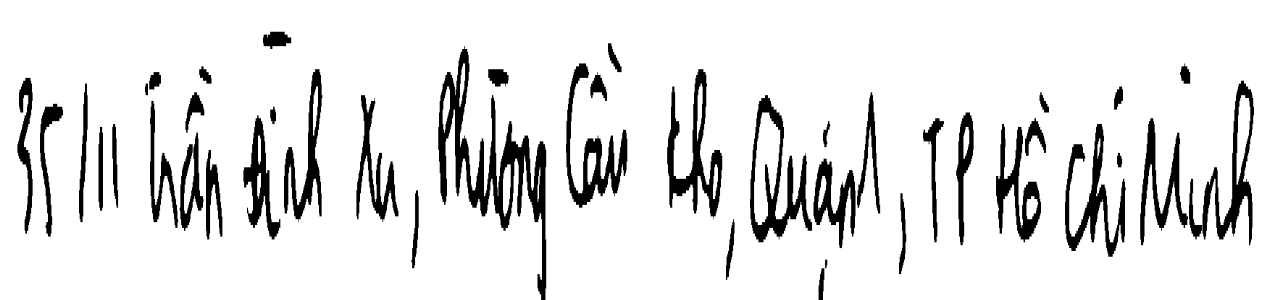 35/11 Trần Đình Xu, Phường Cầu Kho, Quận 1, TP Hồ Chí Minh